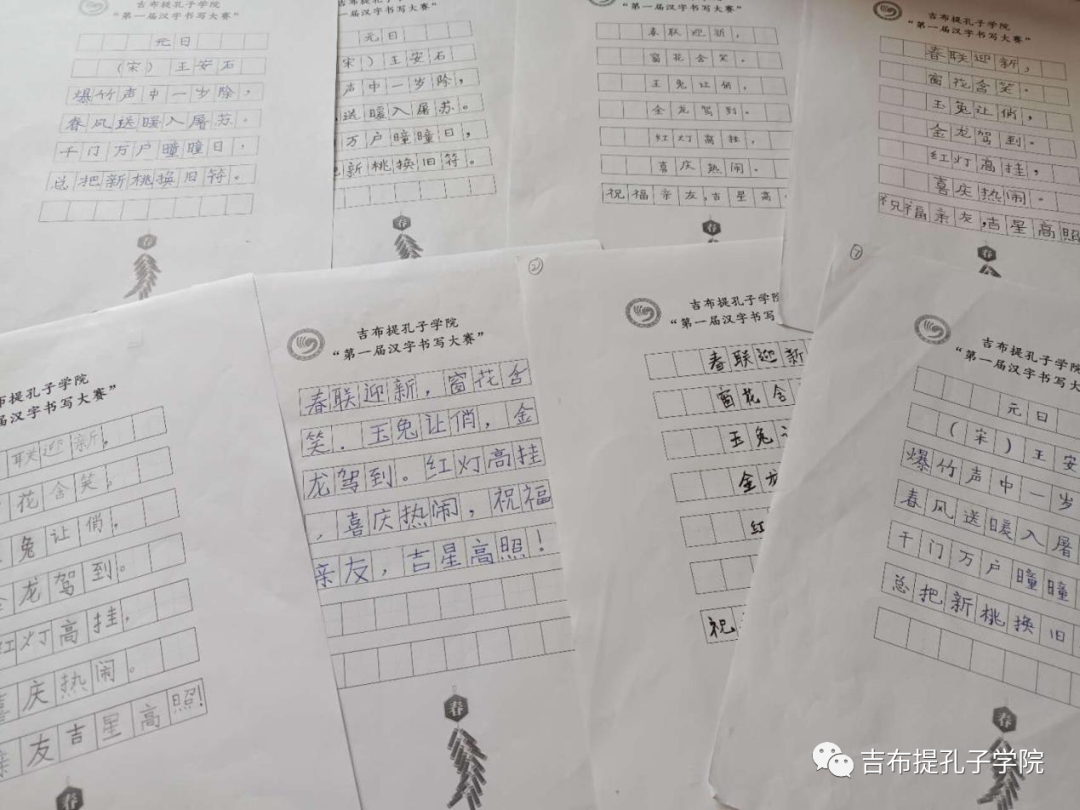 “第一届汉字书写大赛”
元日
（宋）王安石
爆竹声中一岁除，
春风送暖入屠苏。
千门万户瞳瞳日，
总把新桃换旧符。
春
第一届汉字书写大赛”
元日
宋）王安石
声中一岁除，
送暖入屠苏。
万户瞳瞳日，
把新桃换旧符。
春
“第一届汉字书写大赛”
春联迎新，
窗花含笑。
玉兔让俏，
金龙驾到。
红灯高挂，
喜庆热闹。
祝福亲友，吉星高
春
吉布提孔子学院
“第一届汉字书写大赛”
春联迎新，
窗花含笑。
玉兔让俏，
金龙驾到。
红灯高挂，
喜庆热闹。
祝福亲友，吉星高照
春
布提孔子学院
届汉字书写大赛”
联迎新，
花含笑，
兔让俏，
金龙驾到。
红灯高挂，
喜庆热闹。
亲友吉星高照！
春
吉布提孔子学院
“第一届汉字书写大赛”
春联迎新，窗花含
笑．玉兔让俏，金
龙驾到。红灯高挂
，喜庆热闹，祝福
亲友，吉星高照！
春
2
吉布提孔子学院
“第一届汉字书写
春联迎新
窗花含
玉兔
金龙
红
祝
7
吉布提孔子学院
“第一届汉字书写大
元日
（宋）王安
爆竹声中一岁
春风送暖入屠
千门万户瞳瞳
总把新桃换旧
春
吉布提孔子学院